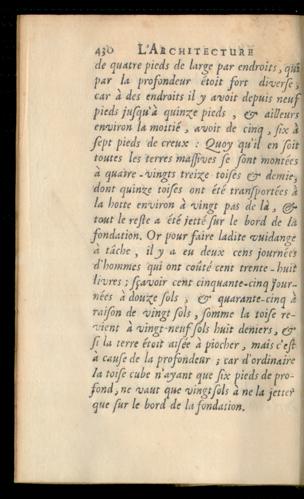 430 L'ARCHITECTURE
de quatre pieds de large par endroits, qui
par la profondeur étoit fort diverse,
car à des endroits il y avoit depuis neuf
pieds jusqu'à quinze pieds, & ailleurs
environ la moitié, avoit de cinq, six à
sept pieds de creux : Quoy qu'il en soit
toutes les terres massives se sont montées
à quatre-vingts treize toises & demie,
dont quinze toises ont été transportées à
la hotte environ à vingt pas de là, &
tout le reste a été jetté sur le bord de la
fondation. Or pour faire ladite vuidange
à tâche, il y a eu deux cens journées
d'hommes qui ont coûté cent trente-huit
livres ; sçavoir cent cinquante-cinq jour-
nées à douze sols, & quarante-cinq à
raison de vingt sols, somme la toise re-
vient à vingt-neuf sols huit deniers, &
si la terre étoit aisée à piocher, mais c'est
à cause de la profondeur ; car d'ordinaire
la toise cube n'ayant que six pieds de pro-
fond, ne vaut que vingt sols à ne la jetter
que sur le bord de la fondation.